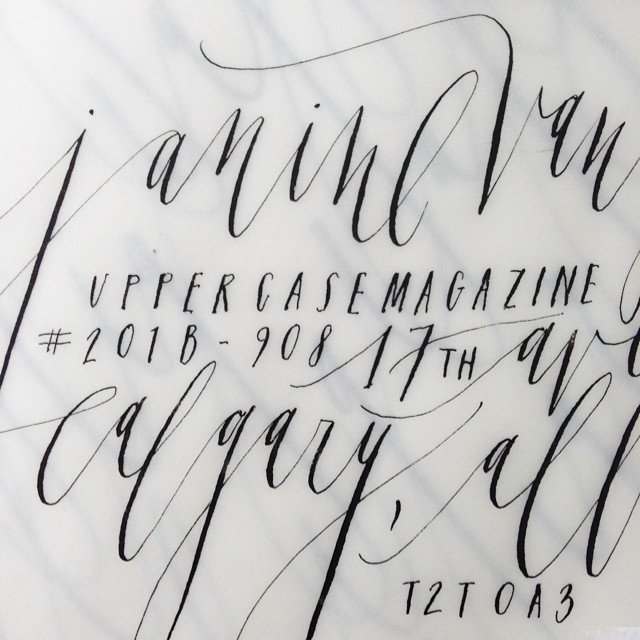 janine Van
UPPERCASE MAGAZINE
#201B-908 17TH ave
Calgary, al
T2T 0A3